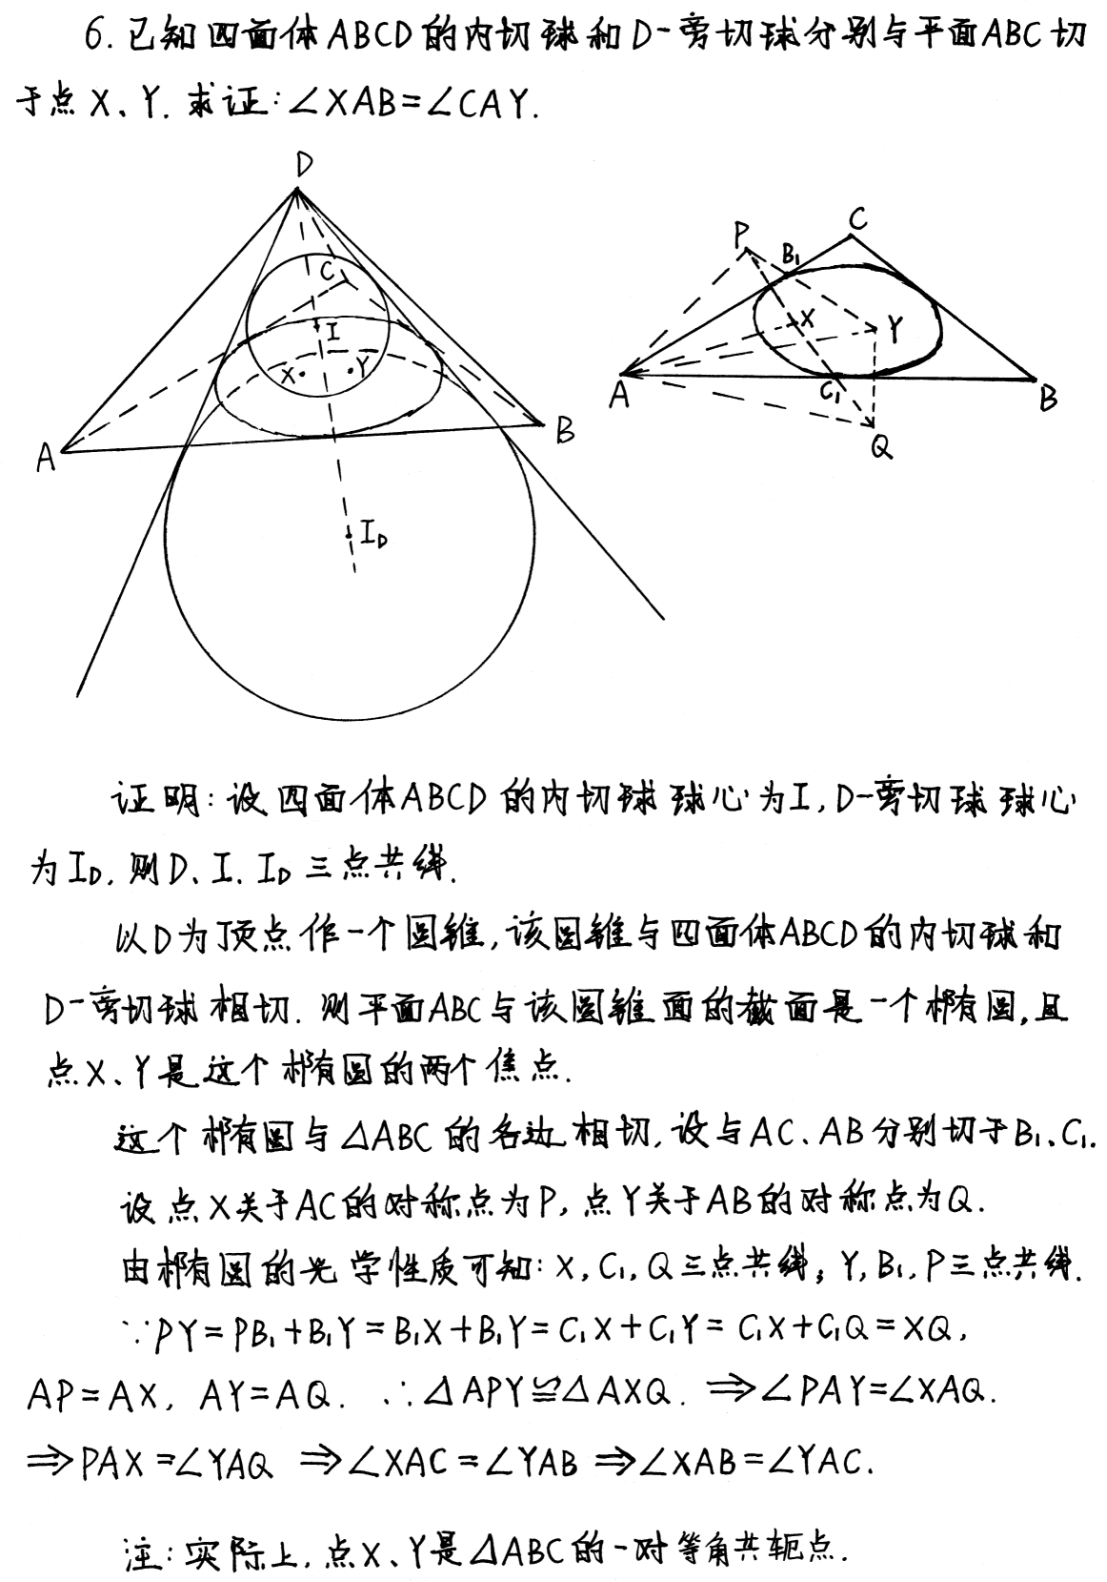 6. 已知四面体ABCD的内切球和D-旁切球分别与平面ABC切
于点X、Y. 求证:∠XAB=∠CAY.
D
C
I
X
Y
A
B
I_D
P
C
B₁
X
Y
A
C₁
B
Q
证明:设四面体ABCD的内切球球心为I,D-旁切球球心
为I_D, 则D、I、I_D三点共线.
以D为顶点作一个圆锥,该圆锥与四面体ABCD的内切球和
D-旁切球相切. 则平面ABC与该圆锥面的截面是一个椭圆,且
点X、Y是这个椭圆的两个焦点.
这个椭圆与△ABC的各边相切, 设与AC、AB分别切于B₁、C₁.
设点X关于AC的对称点为P, 点Y关于AB的对称点为Q.
由椭圆的光学性质可知: X, C₁, Q三点共线; Y, B₁, P三点共线.
∵PY=PB₁+B₁Y=B₁X+B₁Y=C₁X+C₁Y=C₁X+C₁Q=XQ,
AP=AX, AY=AQ. ∴△APY≌△AXQ. ⇒∠PAY=∠XAQ.
⇒PAX=∠YAQ ⇒∠XAC=∠YAB⇒∠XAB=∠YAC.
注:实际上, 点X、Y是△ABC的一对等角共轭点.